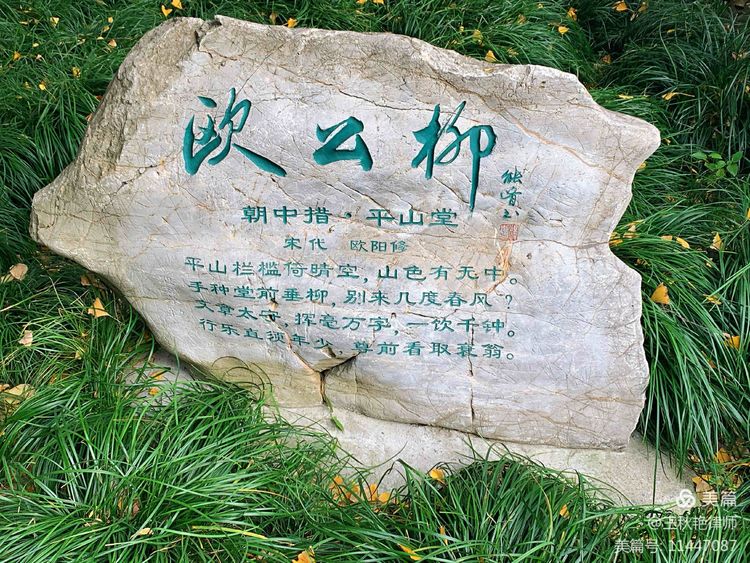 欧公柳
朝中措·平山堂
宋代 欧阳修
平山栏槛倚晴空，山色有无中。
手种堂前垂柳，别来几度春风？
文章太守，挥毫万字，一饮千钟。
行乐直须年少，尊前看取衰翁。
美篇
@王秋艳律师
美篇号: 11447087